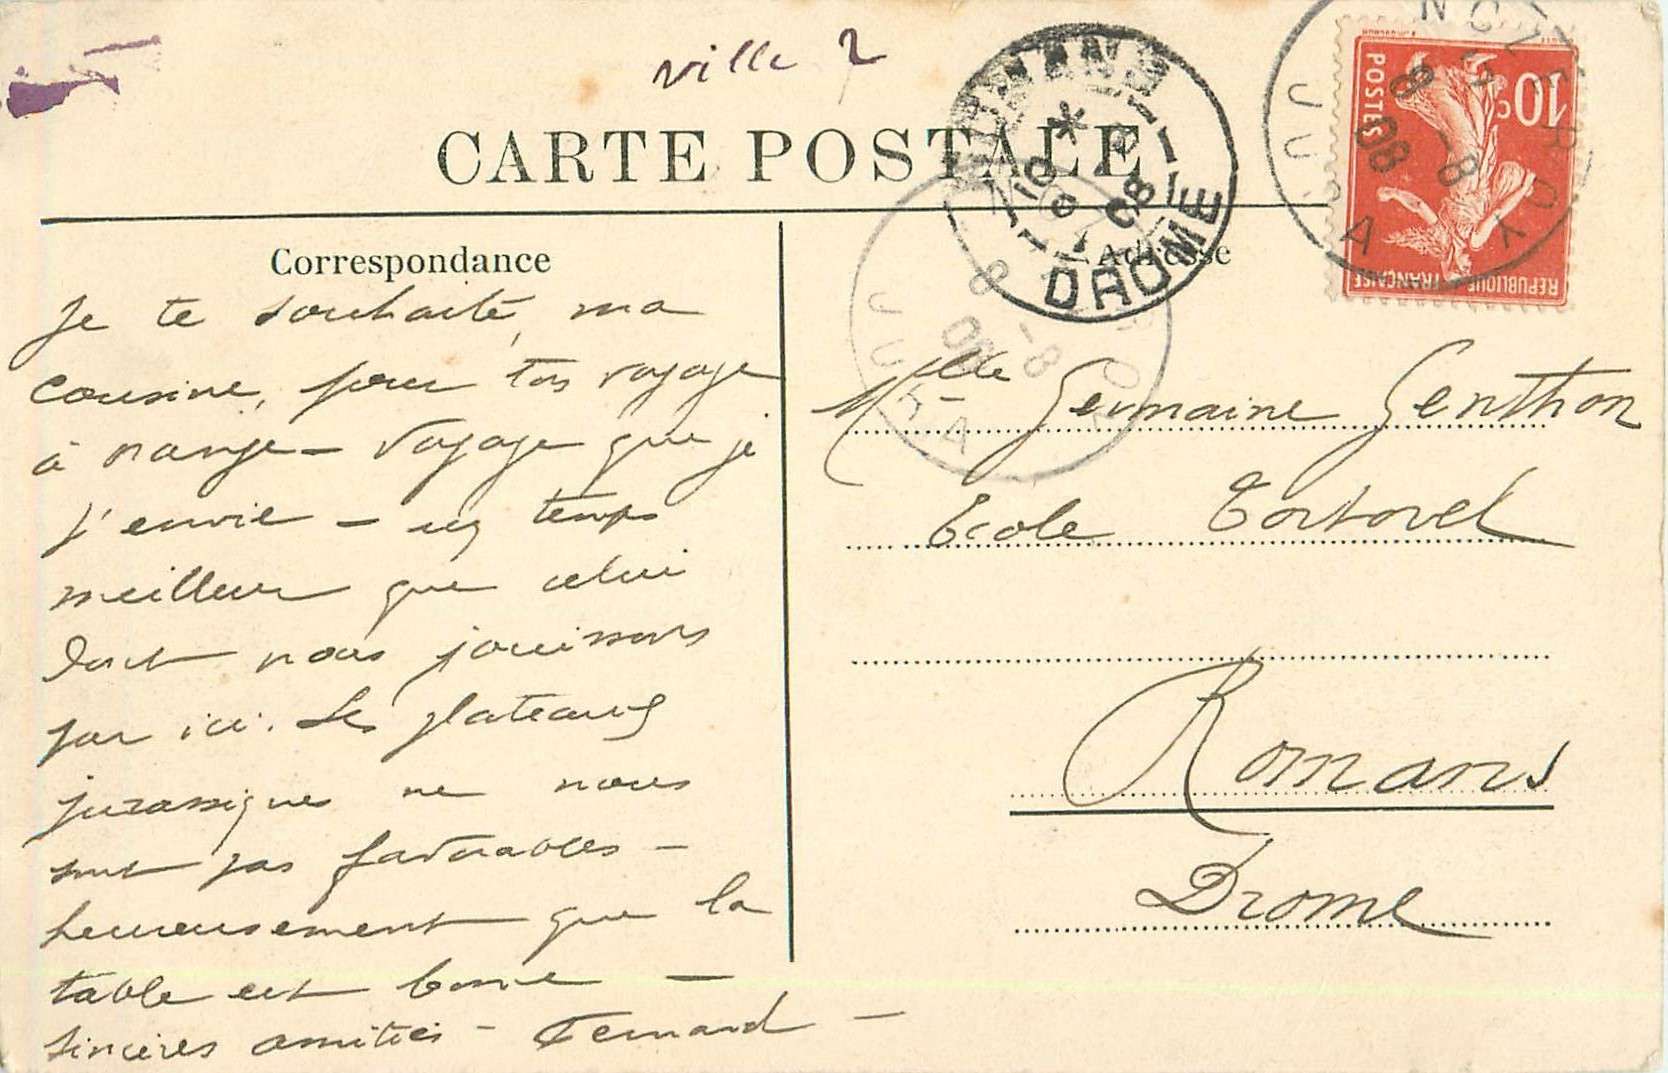 ville 2
CARTE POSTALE
Correspondance
Je te souhaite, ma
cousine, pour ton voyage
à orange - Voyage que je
t'envie - un temps
meilleur que celui
dont nous jouissons
par ici. Les plateaux
jurassiques ne nous
sont pas favorables -
heureusement que la
table est bonne -
sincères amitiés - Fernand -
Adresse
Mlle Germaine Genthon
Ecole
Romans
Drome
10c
POSTES
REPUBLIQUE FRANÇAISE
NOZEROY
8 -8
08
JURA
DROME
08
8 -8
08
JURA